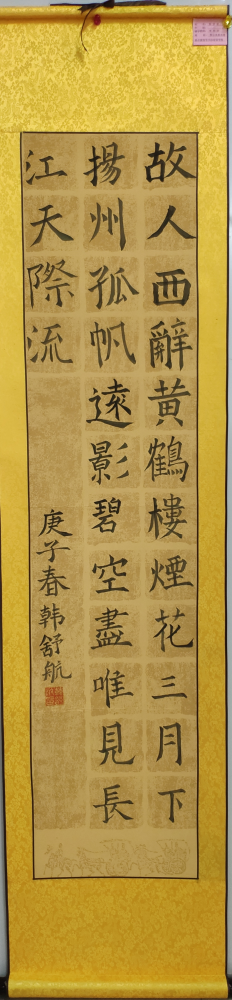 故人西辭黃鶴樓煙花三月下
揚州孤帆遠影碧空盡唯見長
江天際流
庚子春韩舒航